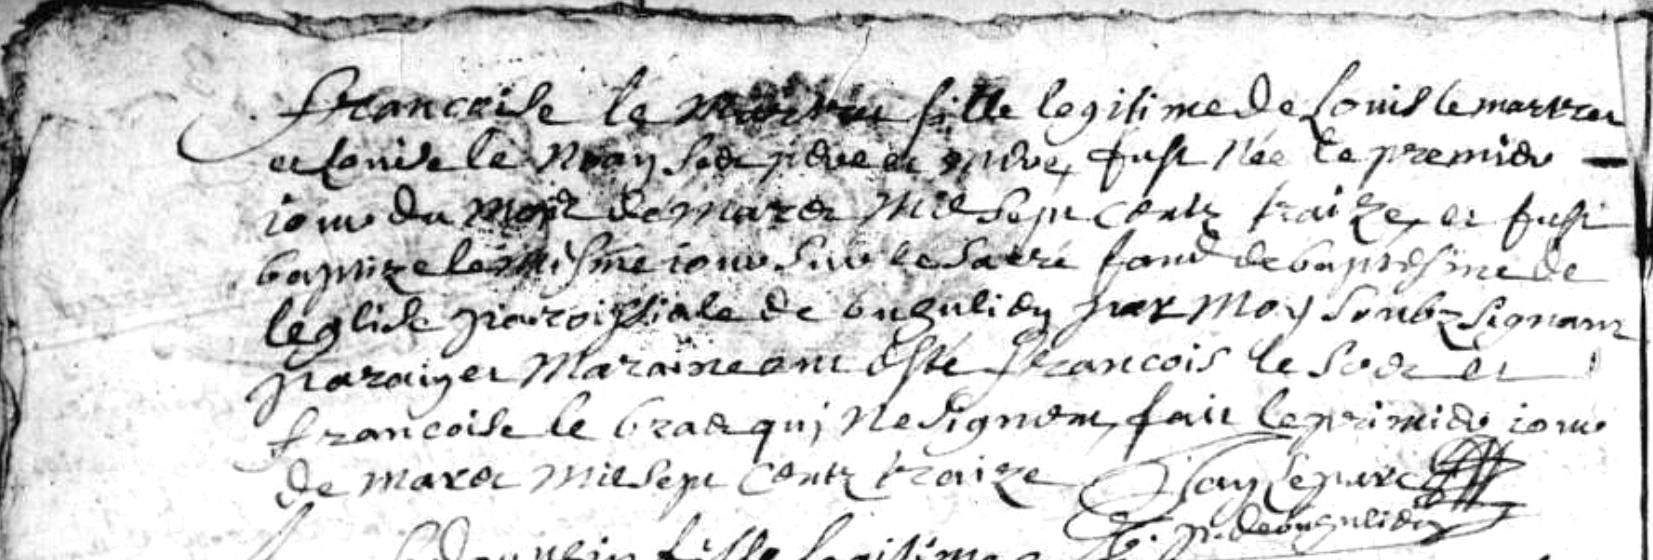 francoise le marrec fille legitime de Louis le marrec
et Louise le Noay ses pere et mere, fust Née le premier
iour du mois de marce mil sept centz traize, et fust
baptize le misme iour sur le sacré fond de baptesme de
leglise paroissiale de buhulien par Moy soubzsignant
parain et Maraine ont esté francois le Soec et
francoise le braz quj ne signent, fait le primier iour
de marce mil sept centz traize
p. de buhulien
fille legitime